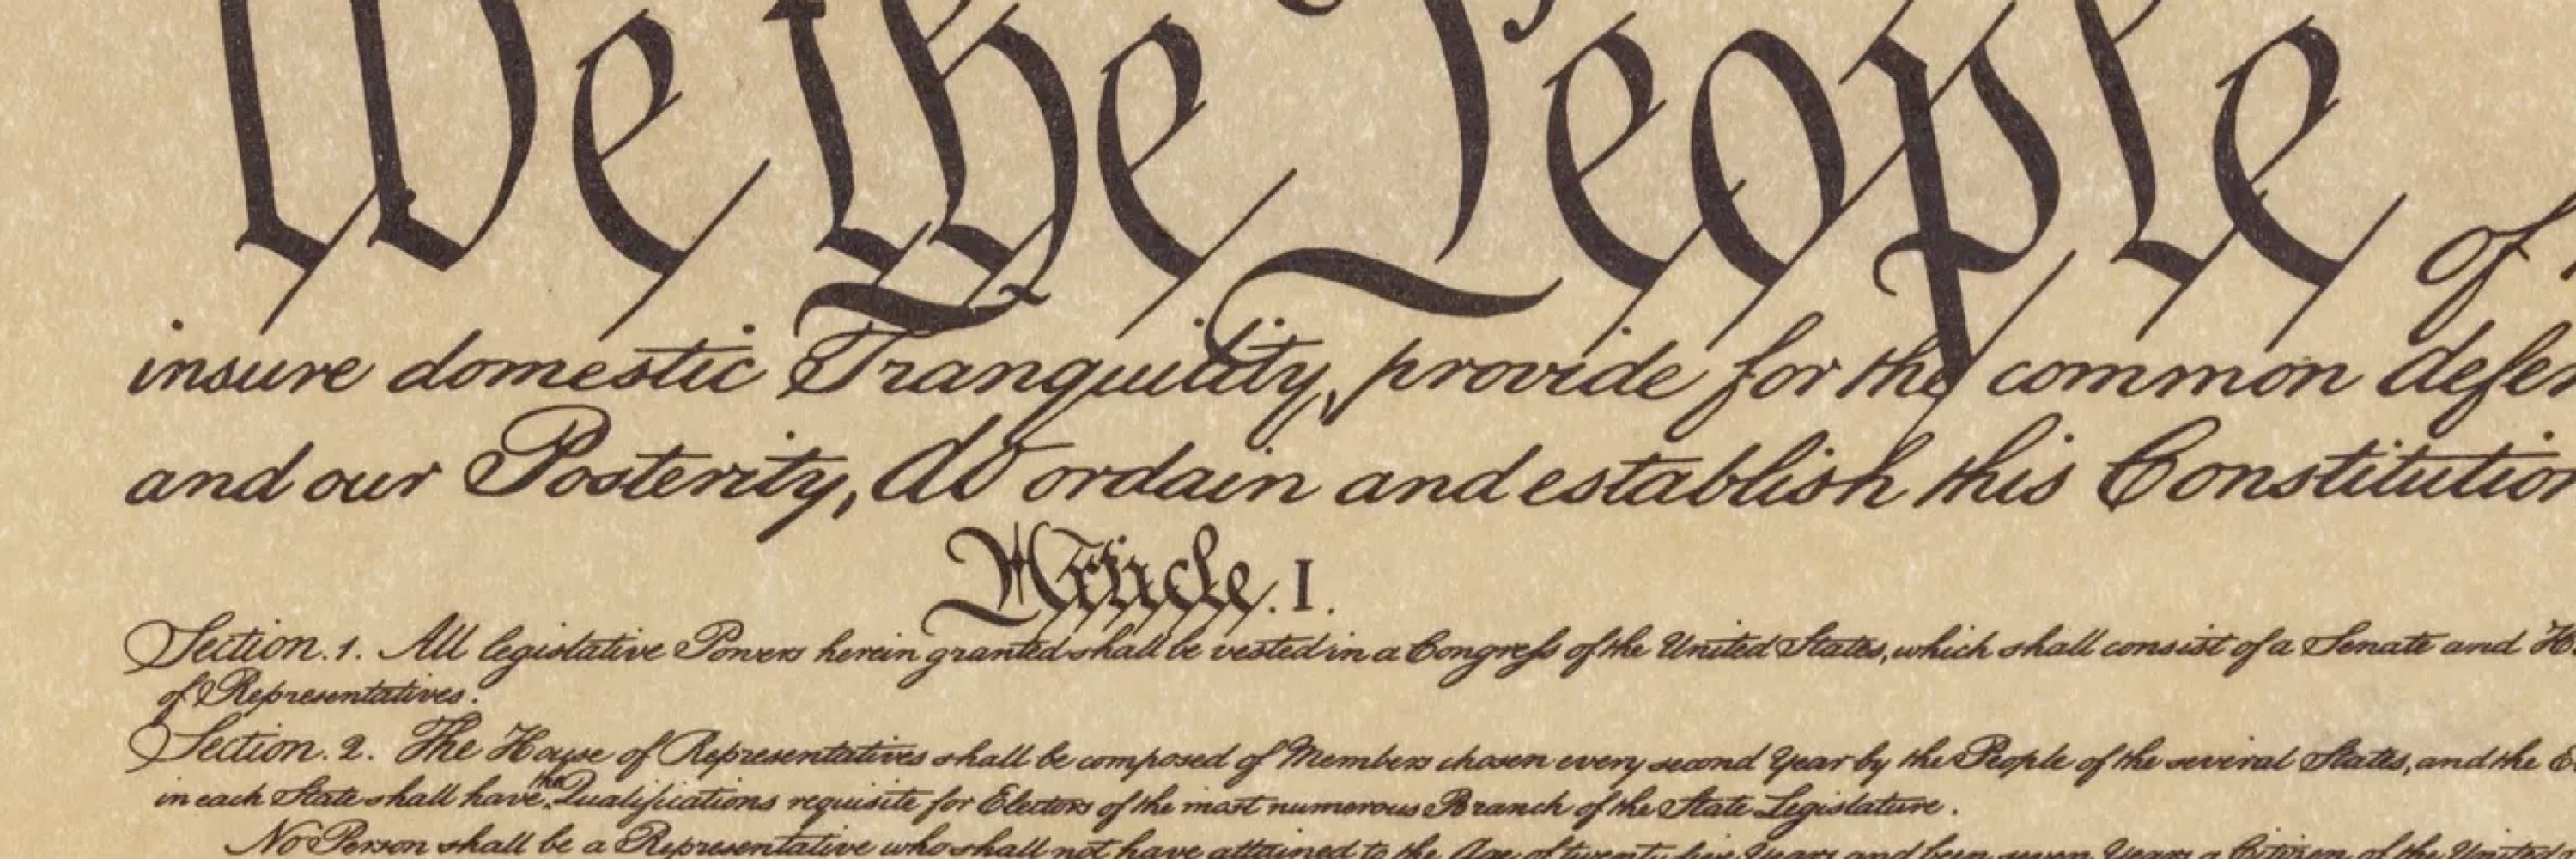 We the People of
insure domestic Tranquility, provide for the common defen
and our Posterity, do ordain and establish this Constitution
Article. I.
Section. 1. All legislative Powers herein granted shall be vested in a Congress of the United States, which shall consist of a Senate and H
of Representatives.
Section. 2. The House of Representatives shall be composed of Members chosen every second Year by the People of the several States, and the E
in each State shall have the Qualifications requisite for Electors of the most numerous Branch of the State Legislature.
No Person shall be a Representative who shall not have attained to the Age of twenty five Years, and been seven Years a Citizen of the United